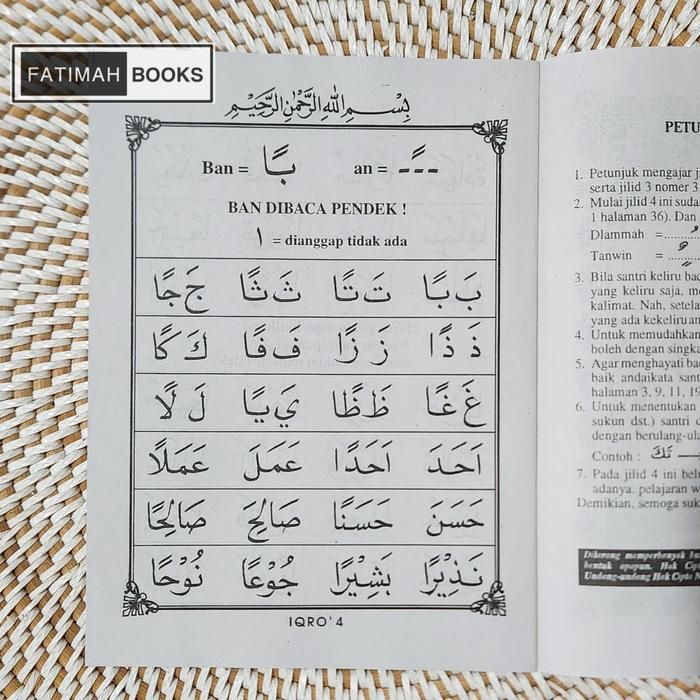 FATIMAH BOOKS
بِسْمِ اللهِ الرَّحْمٰنِ الرَّحِيْمِ
Ban = بًا an = ـًـ
BAN DIBACA PENDEK !
ا = dianggap tidak ada
بَ بًا تَ تًا ثَ ثًا جَ جًا
ذَ ذًا زَ زًا فَ فًا كَ كًا
غَ غًا ظَ ظًا يَ يًا لَ لًا
اَحَدَ اَحَدًا عَمَلَ عَمَلًا
حَسَنَ حَسَنًا صَالِحَ صَالِحًا
نَذِيْرًا بَشِيْرًا جُوْعًا نُوْحًا
IQRO' 4
PETU
1. Petunjuk mengajar j
serta jilid 3 nomer 3
2. Mulai jilid 4 ini suda
1 halaman 36). Dan
Dlammah = ......
Tanwin = ......
3. Bila santri keliru bac
yang keliru saja, me
kalimat. Nah, setela
yang ada kekeliruan
4. Untuk memudahkan
boleh dengan singka
5. Agar menghayati bac
baik andaikata san
halaman 3, 9, 11, 19
6. Untuk menentukan
sukun dst.) santri c
dengan berulang-ula
Contoh :
7. Pada jilid 4 ini belu
adanya. pelajaran w
Demikian, semoga suk
Dilarang memperbanyak
bentuk apapun. Hak Cip
Undang-undang Hak Cipta